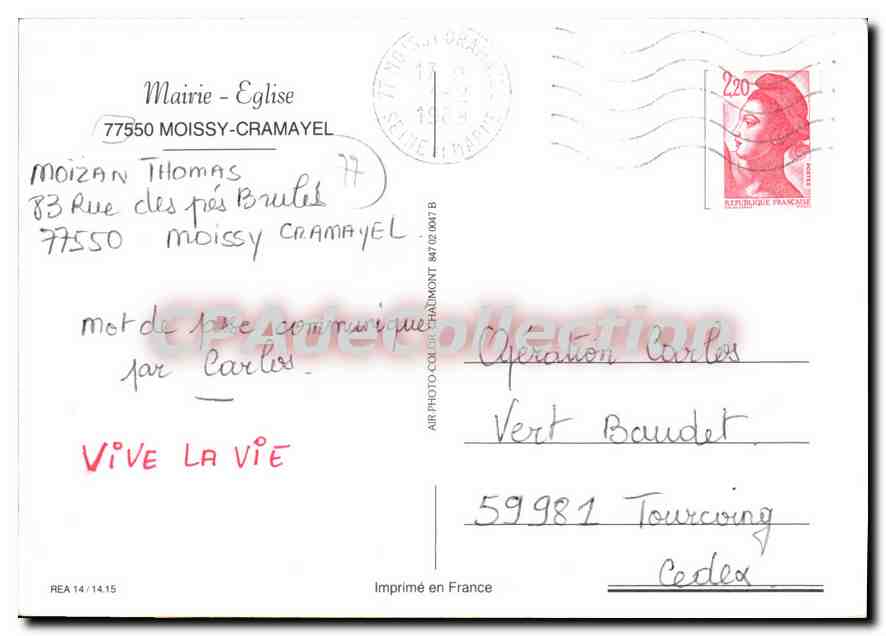 Mairie - Eglise
77550 MOISSY-CRAMAYEL
MOÏZAN THOMAS
77
83 Rue des prés Brulés
77550 MOISSY CRAMAYEL.
mot de passe communiqué
par Carlos.
VIVE LA VIE
REA 14 / 14.15
AIR PHOTO-COLOR CHAUMONT 847 02 0047 B
Imprimé en France
77 MOISSY CRAMAYEL
1989
SEINE ET MARNE
2,20
POSTES
REPUBLIQUE FRANCAISE
Opération Carlos
Vert Baudet.
59981 Tourcoing
Cedex.
CPAdeCollection